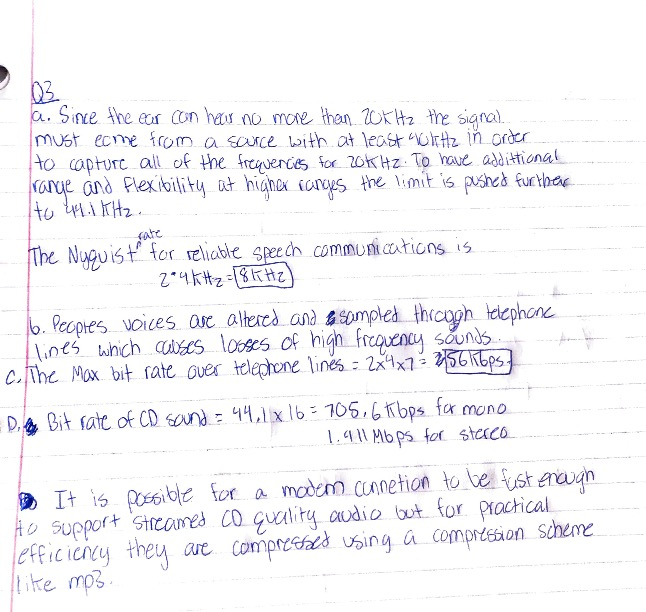 Q3
a. Since the ear can hear no more than 20KHz the signal
must come from a source with at least 40KHz in order
to capture all of the frequencies for 20KHz. To have addittional
range and flexibility at higher ranges the limit is pushed further
to 44.1KHz.
The Nyquist rate for reliable speech communications is
2*4KHz=8KHz
b. Peoples voices are altered and sampled through telephone
lines which causes losses of high frequency sounds.
C. The Max bit rate over telephone lines = 2x4x7= 56Kbps
D. Bit rate of CD sound = 44.1 x 16 = 705.6 Kbps for mono
1.411 Mbps for stereo
It is possible for a modem connetion to be fast enough
to support streamed CD quality audio but for practical
efficiency they are compressed using a compression scheme
like mp3.